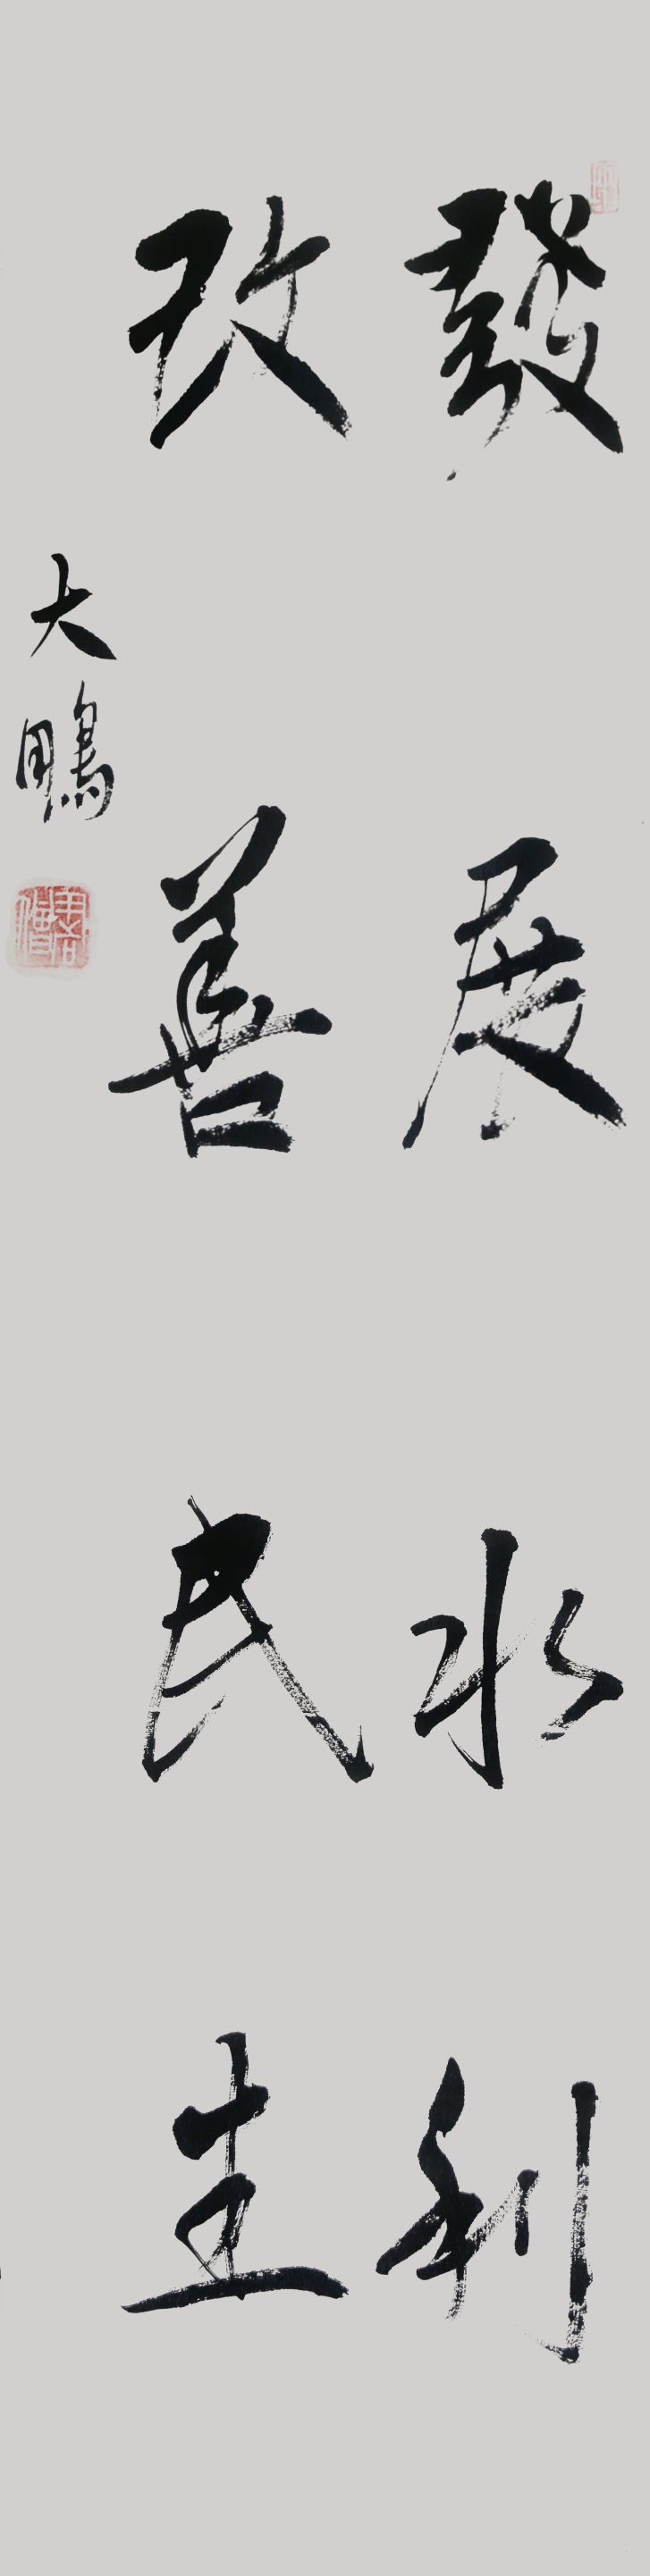 發展水利
改善民生
大鵬